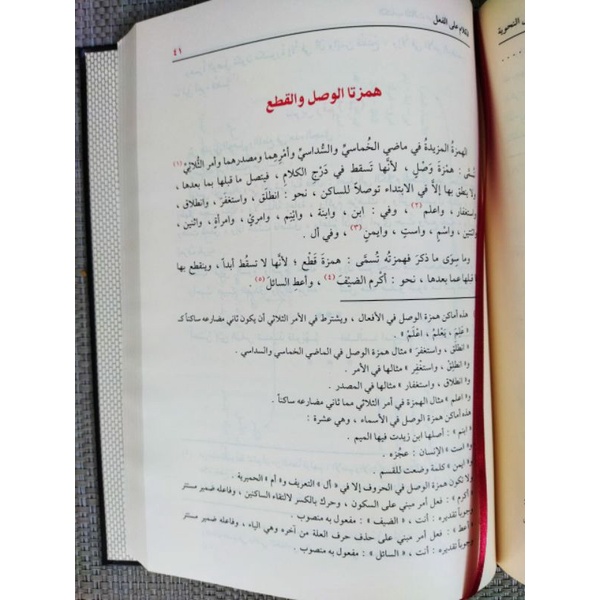 الكلام على الفعل
٤١
همزتا الوصل والقطع
الهمزةُ المزيدةُ في ماضي الخُماسيِّ والسُّداسيِّ وأمْرِهِما ومصدرهما وأمر الثُّلاثِيِّ (١)
تُسمَّى : همْزةَ وَصْلٍ ، لأنَّها تَسقط في دَرْجِ الكلامِ ، فيتصل ما قبلها بما بعدها ،
ولا ينطق بها إلَّا في الابتداء توصلاً للساكن ، نحو : انطَلَقَ ، واستغفَرَ ، وانطلاق ،
واستغفار ، واعلم (٢) ، وفي : ابن ، وابنة ، وابْنِم ، وامرئٍ ، وامرأةٍ ، واثنين ،
واثنتين ، واسْمٍ ، واستٍ ، وايمنٍ (٣) ، وفي أل .
وما سِوَى ما ذكرَ فهمزتُه تُسمَّى : همزةَ قَطْعٍ ؛ لأنَّها لا تسقُط أبداً ، وينقطع بها
ما قبلها عما بعدها ، نحو : أكْرِم الضيْفَ (٤) ، وأعطِ السائلَ (٥) .
هذه أماكن همزة الوصل في الأفعال ، ويشترط في الأمر الثلاثي أن يكون ثاني مضارعه ساكناً كـ
« عَلِمَ ، يَعْلَمُ ، اعْلَمْ » .
و« انطلَق ، واستغفرَ » مثال همزة الوصل في الماضي الخماسي والسداسي .
و« انطلِقْ ، واستغْفِر » مثالها في الأمر .
و« انطلاق ، واستغفار » مثالها في المصدر .
و« اعلم » مثال الهمزة في أمر الثلاثي مما ثاني مضارعه ساكناً .
هذه أماكن همزة الوصل في الأسماء ، وهي عشرة :
و« ابنم » : أصلها ابن زيدت فيها الميم .
و« است » الإنسان : عجُزه .
و« ايمن » كلمة وضعت للقسم .
ولا تكون همزة الوصل في الحروف إلا في « أل » التعريف و« أم » الحميرية .
« أكرم » : فعل أمر مبني على السكون ، وحرك بالكسر لالتقاء الساكنين ، وفاعله ضمير مستتر
وجوباً تقديره : أنت ، « الضيف » : مفعول به منصوب .
« أعط » : فعل أمر مبني على حذف حرف العلة من آخره وهي الياء ، وفاعله ضمير مستتر
وجوباً تقديره : أنت ، « السائل » : مفعول به منصوب .